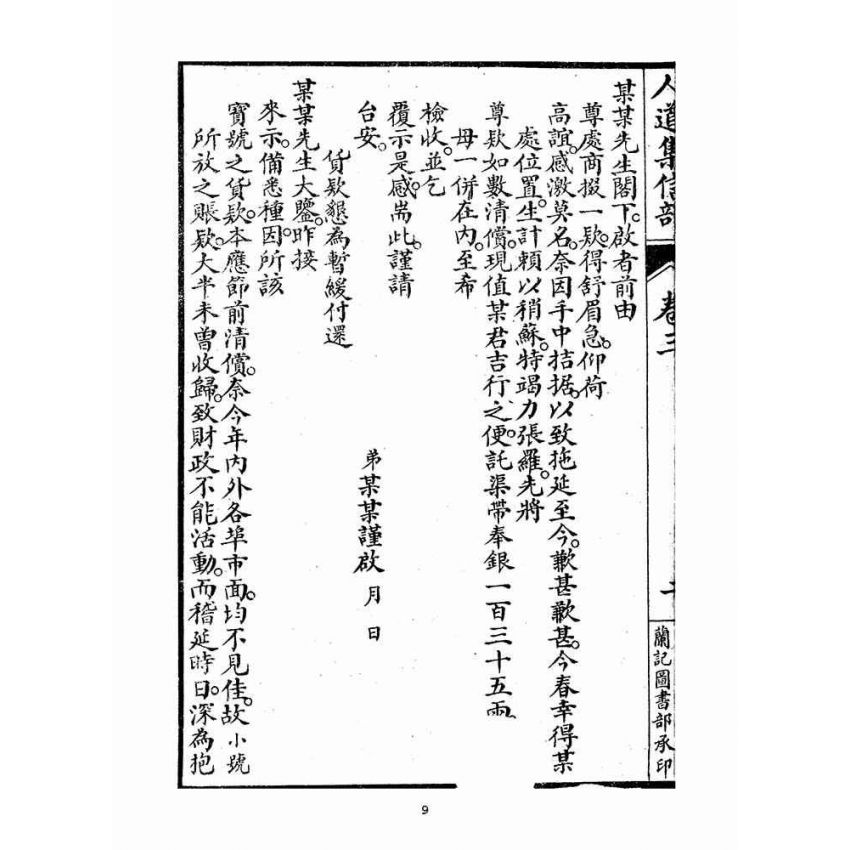 人道集信部 卷三 蘭記圖書部承印
某某先生閣下。啟者前由
尊處商掇一款。得舒眉急。仰荷
高誼。感激莫名。奈因手中拮据。以致拖延至今。歉甚歉甚。今春幸得某
處位置。生計賴以稍蘇。特竭力張羅。先將
尊款如數清償。現值某君吉行之便。託渠帶奉銀一百三十五兩
毋一併在內。至希
檢收。並乞
覆示是感。耑此。謹請
台安。
弟某某謹啟 月 日
貨款懇為暫緩付還
某某先生大鑒。昨接
來示。備悉種因。所該
寶號之貨款。本應節前清償。奈今年內外各埠市面。均不見佳。故小號
所放之賬款。大半未曾收歸。致財政不能活動。而稽延時日。深為抱
9